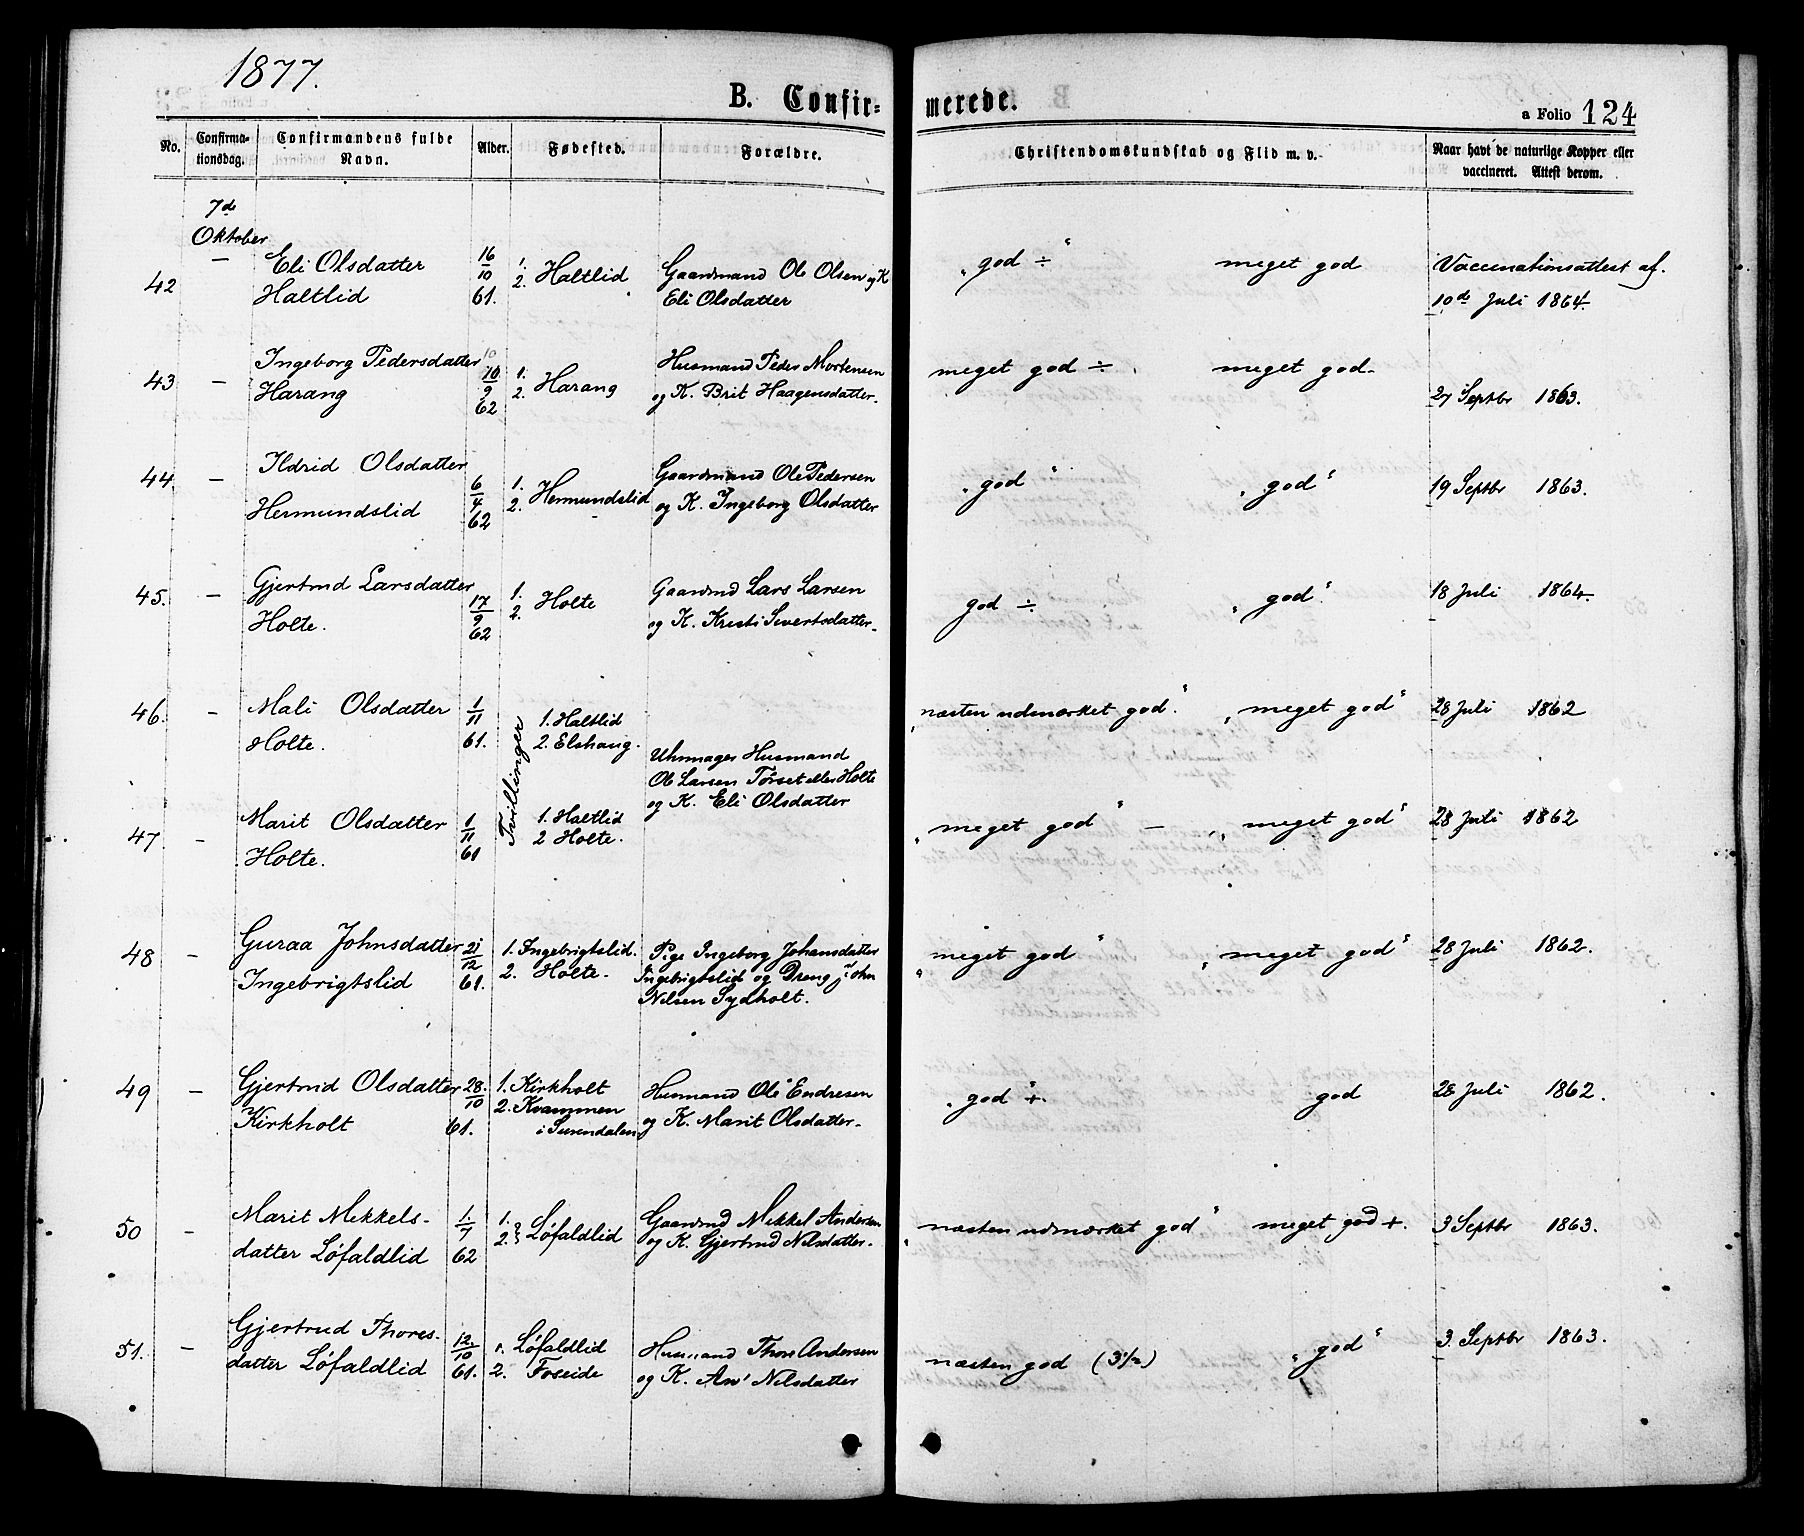 1877.
B. Confir-
merede.
a Folio 124
No.
Confirma-
tionsdag.
Confirmandens fulde
Navn.
Alder.
Fødested.
Forældre.
Christendomskundskab og Flid m. v.
Naar havt de naturlige Kopper eller
vaccineret. Attest derom.
7de
Oktober
42 — Eli Olsdatter
Haltlid
16/10 61.
1.
2. Haltlid
Gaardmand Ole Olsen og K
Eli Olsdatter
"god ÷"
meget god
Vaccinationsattest af.
10de Juli 1864.
43 — Ingeborg Pedersdatter
Harang
10/9 62
1.
2. Harang
Husmand Peder Mortensen
og K. Brit Haagensdatter.
meget god ÷
meget god.
27 Septbr 1863.
44. — Ildrid Olsdatter
Hermundslid
6/4 62
1.
2. Hermundslid
Gaardmand Ole Pedersen
og K. Ingeborg Olsdatter
"god"
"god"
19 Septbr 1863.
45. — Gjertrud Larsdatter
Holte.
17/9 62
1.
2. Holte
Gaardmd Lars Larsen
og K. Kristi Sivertsdatter.
god ÷
"god".
18 Juli 1864.
46. — Mali Olsdatter
Holte.
1/11 61.
Tvillinger
1. Haltlid
2. Elshaug.
Uhrmager Husmand
Ole Larsen Tørset eller Holte
og K. Eli Olsdatter
"næsten udmærket god."
"meget god"
28 Juli 1862
47 — Marit Olsdatter
Holte.
1/11 61
1. Haltlid
2 Holte.
"meget god" —
"meget god"
28 Juli 1862
48 — Guraa Johnsdatter
Ingebrigtslid
21/12 61.
1. Ingebrigtslid.
2. Holte.
Pige Ingeborg Johansdatter
Ingebrigtslid og Dreng John
Nilsen Sydholt.
"meget god"
"meget god"
28 Juli 1862.
49 — Gjertrud Olsdatter
Kirkholt
28/10 61.
1. Kirkholt
2. Kvammen
i Surendalen
Husmand Ole Endresen
og K. Marit Olsdatter.
"god" +.
god
28 Juli 1862.
50 — Marit Mikkels-
datter Løfaldlid
1/7 62
1.
2. Løfaldlid
Gaardmd Mikkel Andersen
og K. Gjertrud Nilsdatter.
"næsten udmærket god"
meget god +.
3 Septbr 1863.
51. — Gjertrud Thores-
datter Løfaldlid
12/10 61.
1. Løfaldlid
2. Foseide
Husmand Thore Andersen
og K. An' Nilsdatter
næsten god (3 1/2)
"god"
3. Septbr 1863.